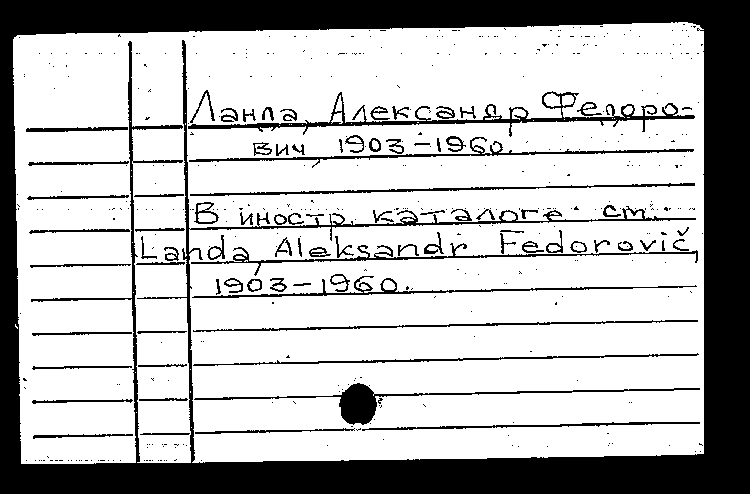 Ланда, Александр Федоро-
вич, 1903-1960.
В иностр. каталоге см.:
Landa, Aleksandr Fedorovič,
1903-1960.